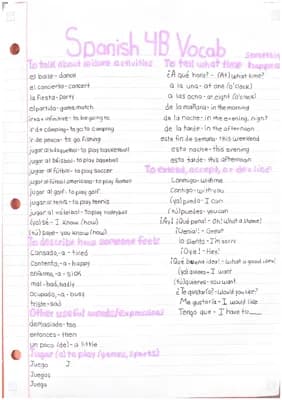 Spanish 4B Vocab
To talk about leisure activities
el baile - dance
el concierto - concert
la fiesta - party
el partido - game, match
ir + a + infinitive - to be going to
ir de cámping - to go to camping
ir de pescar - to go fishing
jugar al básquetbol - to play basketball
jugar al béisbol - to play baseball
jugar al fútbol - to play soccer
jugar al fútbol americano - to play football
jugar al golf - to play golf
jugar al tenis - to play tennis
jugar al vóleibol - To play volleyball
(yo) sé - I know (how)
(tú) sabes - you know (how)
To describe how someone feels
Cansado, -a - tired
Contento, -a - happy
enfermo, -a - sick
mal - bad, badly
Ocupado, -a - busy
triste - sad
Other useful words/expressions
demasiado - too
entonces - then
un poco (de) - a little
Jugar (a) to play (games, sports)
Juego
Juegas
Juega
To tell what time something happens
¿A qué hora? - (At) what time?
a la una - at one (o'clock)
a las ocho - at eight (o'clock)
de la mañana - in the morning
de la noche - in the evening, night
de la tarde - in the afternoon
este fin de semana - this weekend
esta noche - this evening
esta tarde - this afternoon
To extend, accept, or decline
Conmigo - with me
Contigo - with you
(yo) puedo - I can
(tú) puedes - you can
¡Ay! ¡Qué pena! - Oh! What a shame!
¡Genial! - Great
lo siento - I'm sorry
¡Oye! - Hey!
¡Qué buena idea! - What a good idea!
(yo) quiero - I want
(tú) quieres - you want
¿Te gustaría? - Would you like
Me gustaría - I would like
Tengo que - I have to